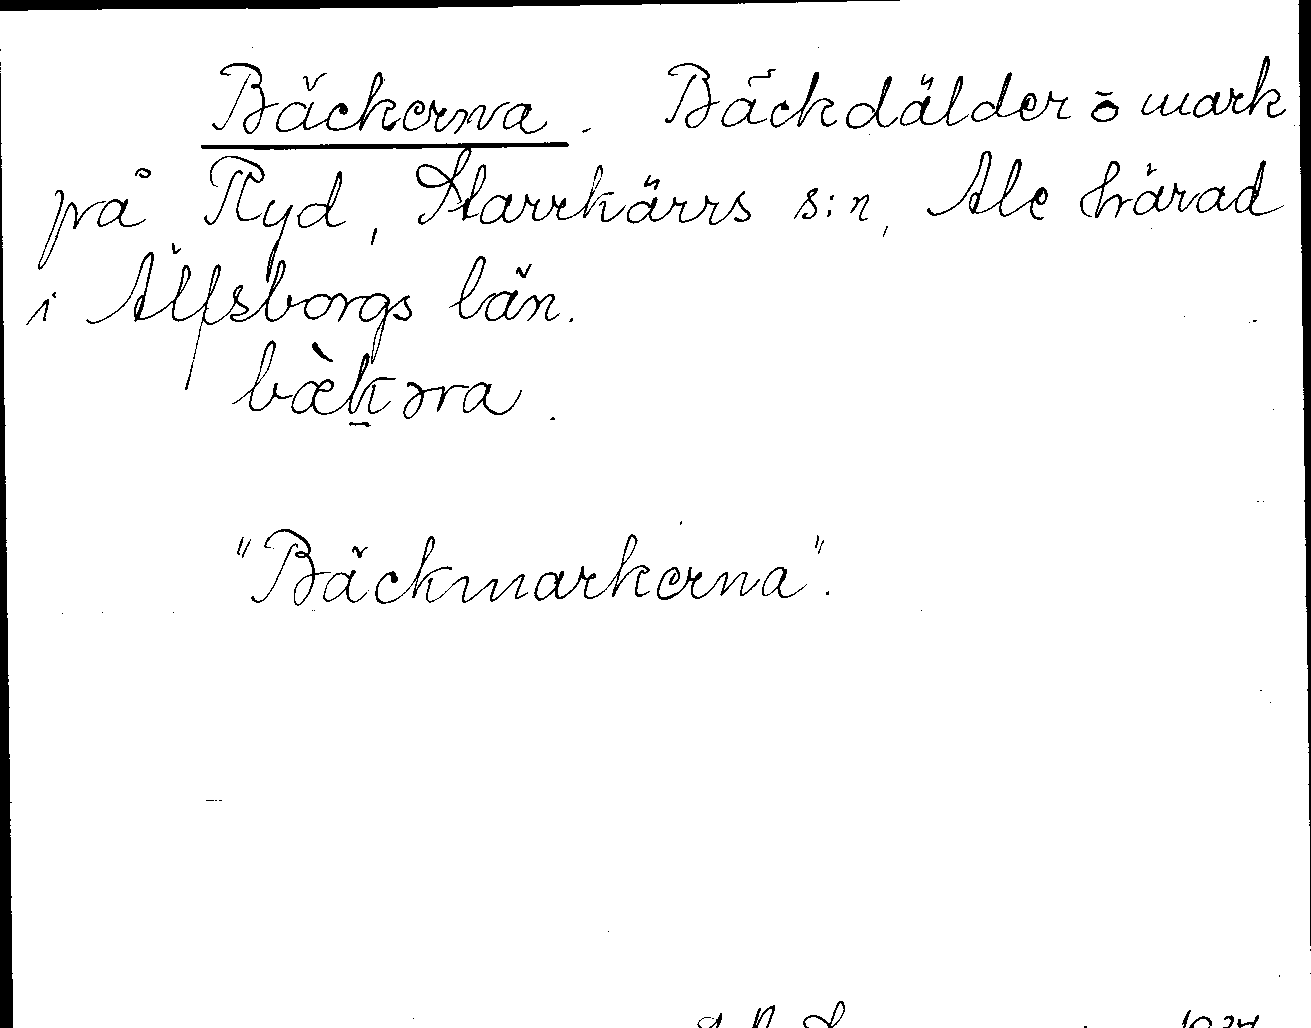 Bäckerna. Bäckdälder o mark
på Ryd, Starrkärrs s:n, Ale härad
i Älfsborgs län.
bæ̀kəra.
"Bäckmarkerna".